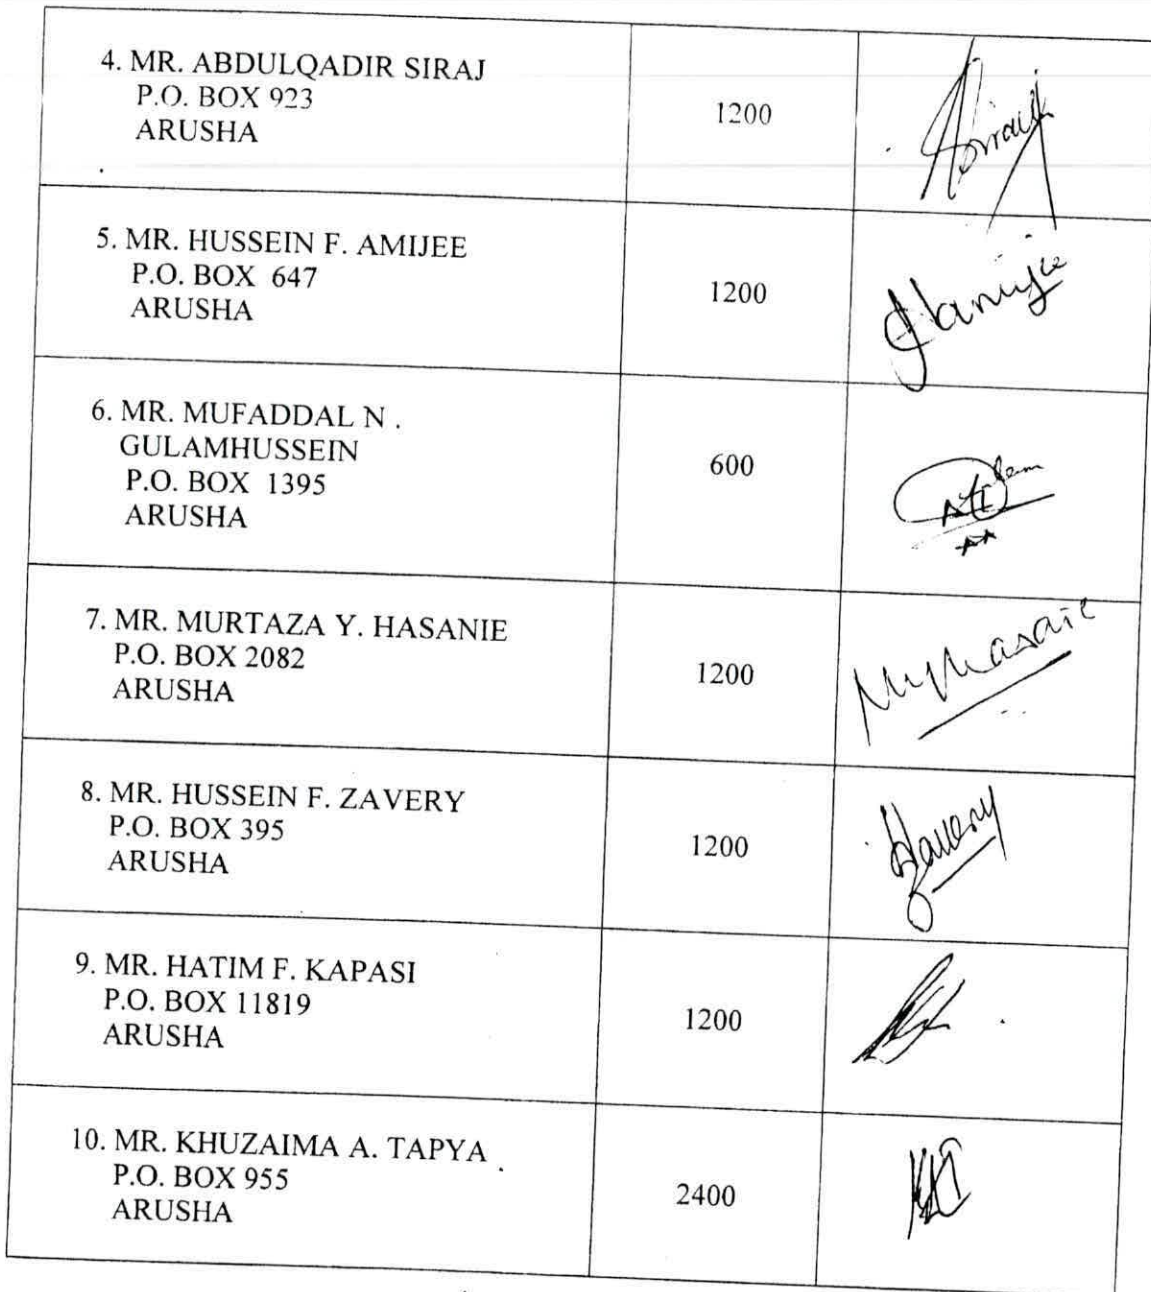 4. MR. ABDULQADIR SIRAJ
P.O. BOX 923
ARUSHA
1200
5. MR. HUSSEIN F. AMIJEE
P.O. BOX 647
ARUSHA
1200
6. MR. MUFADDAL N .
GULAMHUSSEIN
P.O. BOX 1395
ARUSHA
600
7. MR. MURTAZA Y. HASANIE
P.O. BOX 2082
ARUSHA
1200
8. MR. HUSSEIN F. ZAVERY
P.O. BOX 395
ARUSHA
1200
9. MR. HATIM F. KAPASI
P.O. BOX 11819
ARUSHA
1200
10. MR. KHUZAIMA A. TAPYA
P.O. BOX 955
ARUSHA
2400